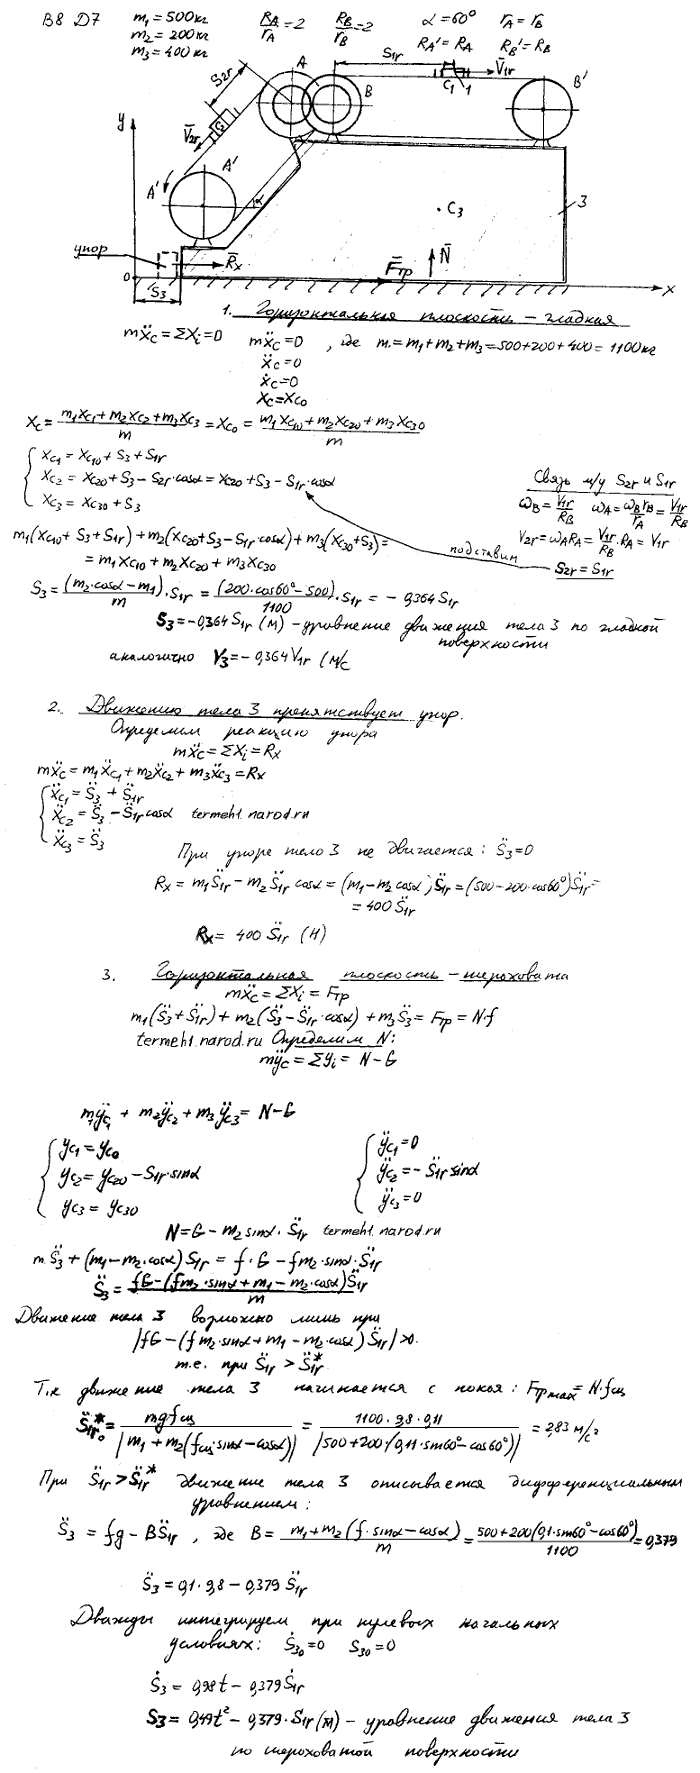 В8 Д7 m₁=500кг R_A/r_A=2 R_B/r_B=2 α=60° r_A=r_B
m₂=200кг R_A'=R_A R_B'=R_B
m₃=400кг
S₁r
S₂r A B C₁ 1 V̄₁r B'
y V̄₂r
A' A' α
C₃ 3
упор R̄x F̄тр N̄
0 S₃ x
1. Горизонтальная плоскость – гладкая
mẍc=ΣXi=0 mẍc=0, где m=m₁+m₂+m₃=500+200+400=1100кг
ẍc=0
ẋc=0
xc=xc₀
xc=(m₁xc₁+m₂xc₂+m₃xc₃)/m=xc₀=(m₁xc₁₀+m₂xc₂₀+m₃xc₃₀)/m
xc₁=xc₁₀+S₃+S₁r
xc₂=xc₂₀+S₃-S₂r·cosα=xc₂₀+S₃-S₁r·cosα
xc₃=xc₃₀+S₃
Связь м/у S₂r и S₁r
ω_B=V₁r/R_B ω_A=ω_B r_B/r_A=V₁r/R_B
V₂r=ω_A R_A=V₁r/R_B·R_A=V₁r
подставим S₂r=S₁r
m₁(xc₁₀+S₃+S₁r)+m₂(xc₂₀+S₃-S₁r·cosα)+m₃(xc₃₀+S₃)=
=m₁xc₁₀+m₂xc₂₀+m₃xc₃₀
S₃=(m₂·cosα-m₁)/m·S₁r=(200·cos60°-500)/1100·S₁r=-0,364S₁r
S₃=-0,364S₁r (м) – уравнение движения тела 3 по гладкой
поверхности
аналогично V₃=-0,364V₁r (м/с
2. Движению тела 3 препятствует упор.
Определим реакцию упора
mẍc=ΣXi=Rx
mẍc=m₁ẍc₁+m₂ẍc₂+m₃ẍc₃=Rx
ẍc₁=S̈₃+S̈₁r
ẍc₂=S̈₃-S̈₁r cosα termeh1.narod.ru
ẍc₃=S̈₃
При упоре тело 3 не двигается: S̈₃=0
Rx=m₁S̈₁r-m₂S̈₁r cosα=(m₁-m₂cosα)S̈₁r=(500-200·cos60°)S̈₁r=
=400S̈₁r
Rx=400S̈₁r (Н)
3. Горизонтальная плоскость – шероховата
mẍc=ΣXi=Fтр
m₁(S̈₃+S̈₁r)+m₂(S̈₃-S̈₁r·cosα)+m₃S̈₃=Fтр=N·f
termeh1.narod.ru Определим N:
mÿc=Σyi=N-G
m₁ÿc₁+m₂ÿc₂+m₃ÿc₃=N-G
yc₁=yc₀ ÿc₁=0
yc₂=yc₂₀-S₁r·sinα ÿc₂=-S̈₁r sinα
yc₃=yc₃₀ ÿc₃=0
N=G-m₂sinα·S̈₁r termeh1.narod.ru
m·S̈₃+(m₁-m₂·cosα)S̈₁r=f·G-fm₂·sinα·S̈₁r
S̈₃=(fG-(fm₂·sinα+m₁-m₂·cosα)S̈₁r)/m
Движение тела 3 возможно лишь при
|fG-(fm₂·sinα+m₁-m₂·cosα)S̈₁r|>0.
т.е. при S̈₁r>S̈₁r*
Т.к движение тела 3 начинается с покоя: Fтрmax=N·fсц
S̈₁r₀*=mgfсц/|m₁+m₂(fсц·sinα-cosα)|=1100·9,8·0,11/|500+200·(0,11·sin60°-cos60°)|=2,83 м/с²
При S̈₁r>S̈₁r* движение тела 3 описывается дифференциальным
уравнением:
S̈₃=fg-BS̈₁r, где B=(m₁+m₂(f·sinα-cosα))/m=(500+200(0,1·sin60°-cos60°))/1100=0,379
S̈₃=0,1·9,8-0,379S̈₁r
Дважды интегрируем при нулевых начальных
условиях: Ṡ₃₀=0 S₃₀=0
Ṡ₃=0,98t-0,379Ṡ₁r
S₃=0,49t²-0,379·S₁r(м) – уравнение движения тела 3
по шероховатой поверхности